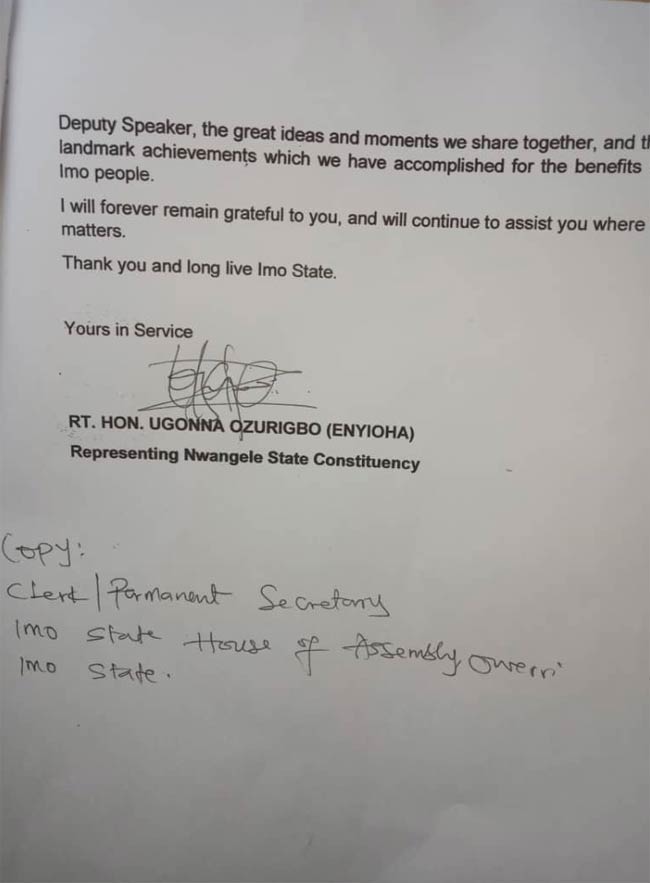 Deputy Speaker, the great ideas and moments we share together, and th
landmark achievements which we have accomplished for the benefits
Imo people.
I will forever remain grateful to you, and will continue to assist you where
matters.
Thank you and long live Imo State.
Yours in Service
RT. HON. UGONNA OZURIGBO (ENYIOHA)
Representing Nwangele State Constituency
Copy:
Clerk/Parmanent Secretary
Imo State House of Assembly, Owerri
Imo State.